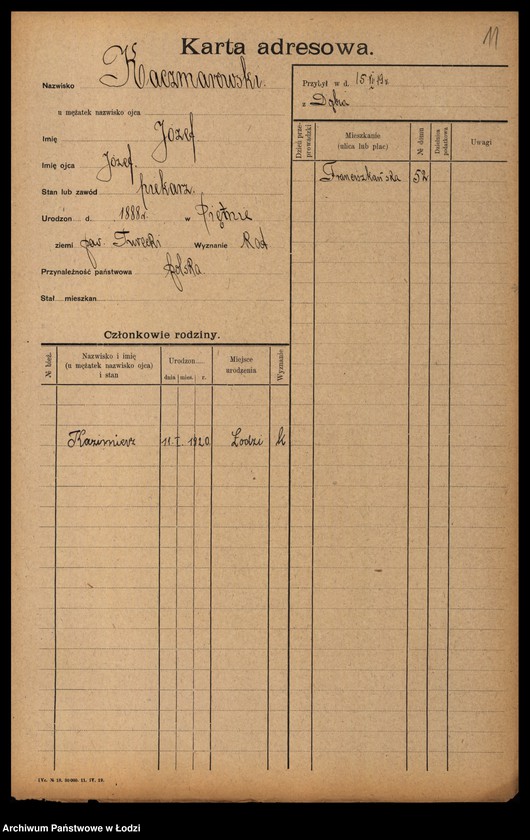 11
Karta adresowa.
Nazwisko Kaczmarowski
u mężatek nazwisko ojca
Imię Józef
Imię ojca Józef
Stan lub zawód piekarz
Urodzon d. 1888 r. w
ziemi pow. Turecki Wyznanie Kat
Przynależność państwowa polska
Stał mieszkan
Przybył w d. 15
z Dąbia
Dzień przeprowadzki
Mieszkanie
(ulica lub plac)
№ domu
Dzielnica podatkowa
Uwagi
Franciszkańska 52
Członkowie rodziny.
№ bież.
Nazwisko i imię
(u mężatek nazwisko ojca)
i stan
Urodzon
dnia mies. r.
Miejsce
urodzenia
Wyznanie
Kazimierz 11 I 1920 Łodzi k
Archiwum Państwowe w Łodzi